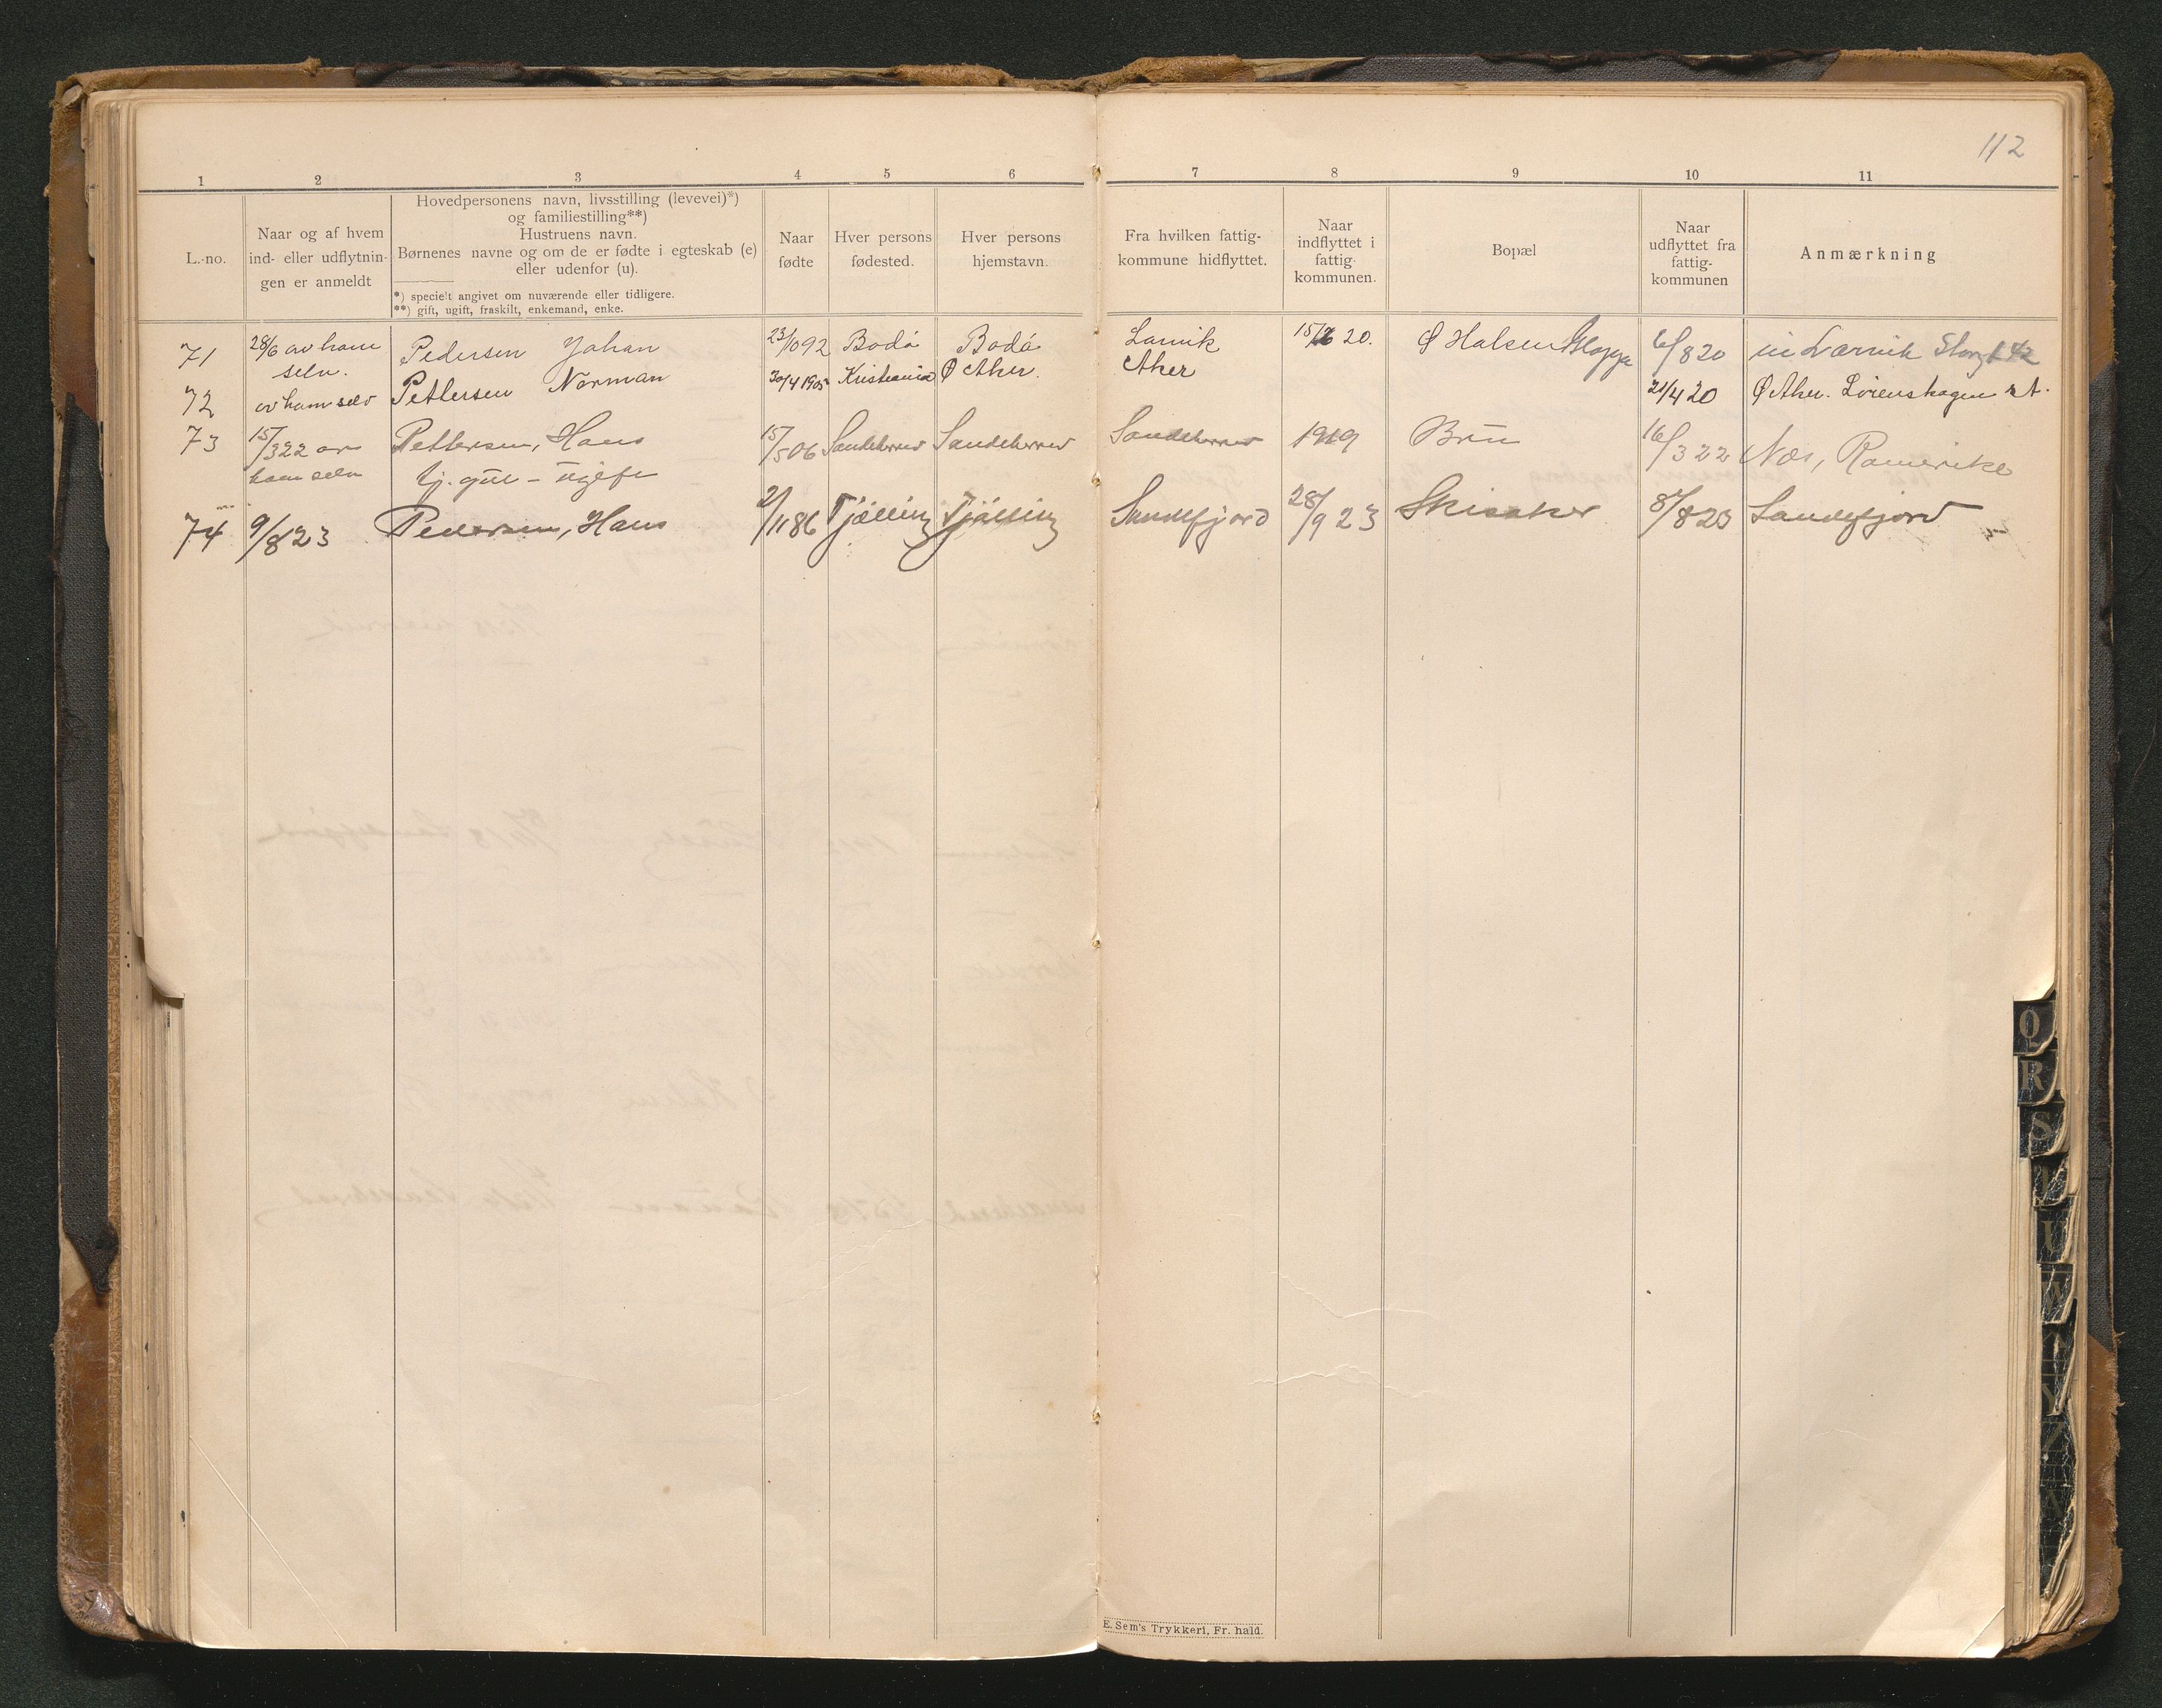 112
1 2 3 4 5 6 7 8 9 10 11
L.-no.
Naar og af hvem
ind- eller udflytnin-
gen er anmeldt
Hovedpersonens navn, livsstilling (levevei)*)
og familiestilling**)
Hustruens navn.
Børnenes navne og om de er fødte i egteskab (e)
eller udenfor (u).
*) specielt angivet om nuværende eller tidligere.
**) gift, ugift, fraskilt, enkemand, enke.
Naar
fødte
Hver persons
fødested.
Hver persons
hjemstavn.
Fra hvilken fattig-
kommune hidflyttet.
Naar
indflyttet i
fattig-
kommunen.
Bopæl
Naar
udflyttet fra
fattig-
kommunen
Anmærkning
71 28/6 av ham Pedersen Johan 23/10 92 Bodø Bodø Larvik 15/6 20. Ø Halsen 6/8 20 Larvik
selv.
72 av ham selv Pettersen Norman 30/4 1905 Kristiania Ø Aker. Aker 21/4 20 Ø Aker.
73 15/3 22 av Pettersen, Hans 15/5 06 Sandeherred Sandeherred Sandeherred 1919 Brun 16/3 22 Næs, Romerike
ham selv tj. gut - ugift
74 9/8 23 Pedersen, Hans 2/11 86 Tjølling Tjølling Sandefjord 28/9 23 Skisaker 8/8 23 Sandefjord
E. Sem's Trykkeri, Fr. hald.
Q
R
S
U
W
Y
Z